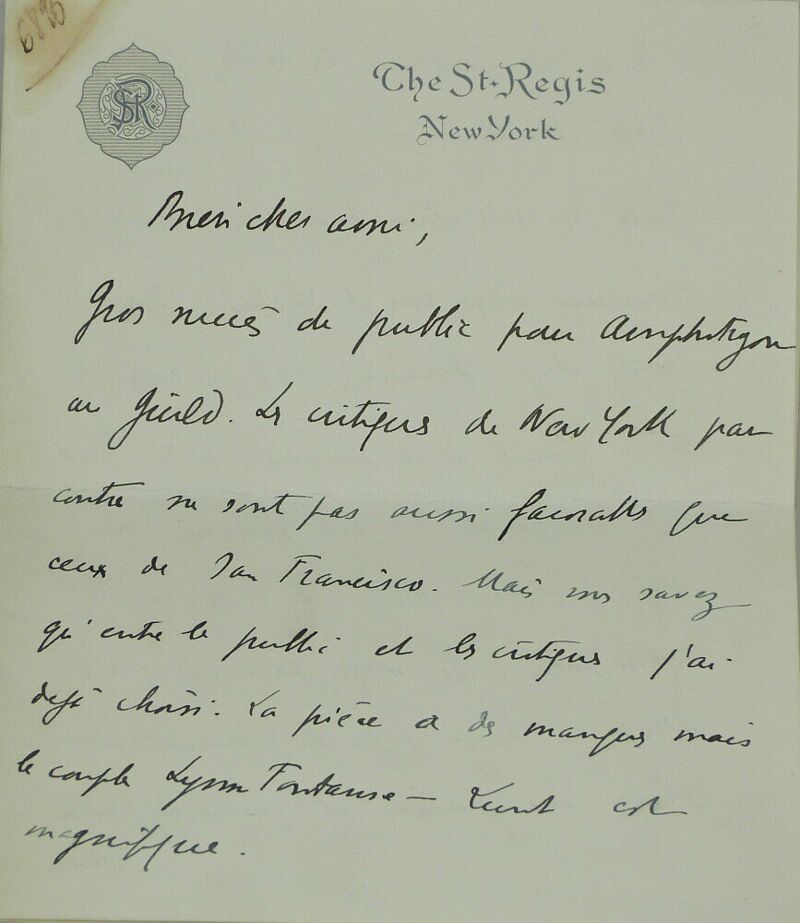 6896
SR
The St. Regis
New York
Mon cher ami,
Gros succès de public pour Amphitryon
au Guild. Les critiques de New York par
contre ne sont pas aussi favorables que
ceux de San Francisco. Mais vous savez
qu'entre le public et les critiques j'ai
déjà choisi. La pièce a des manques mais
le couple Lynn Fontanne – Lunt est
magnifique.